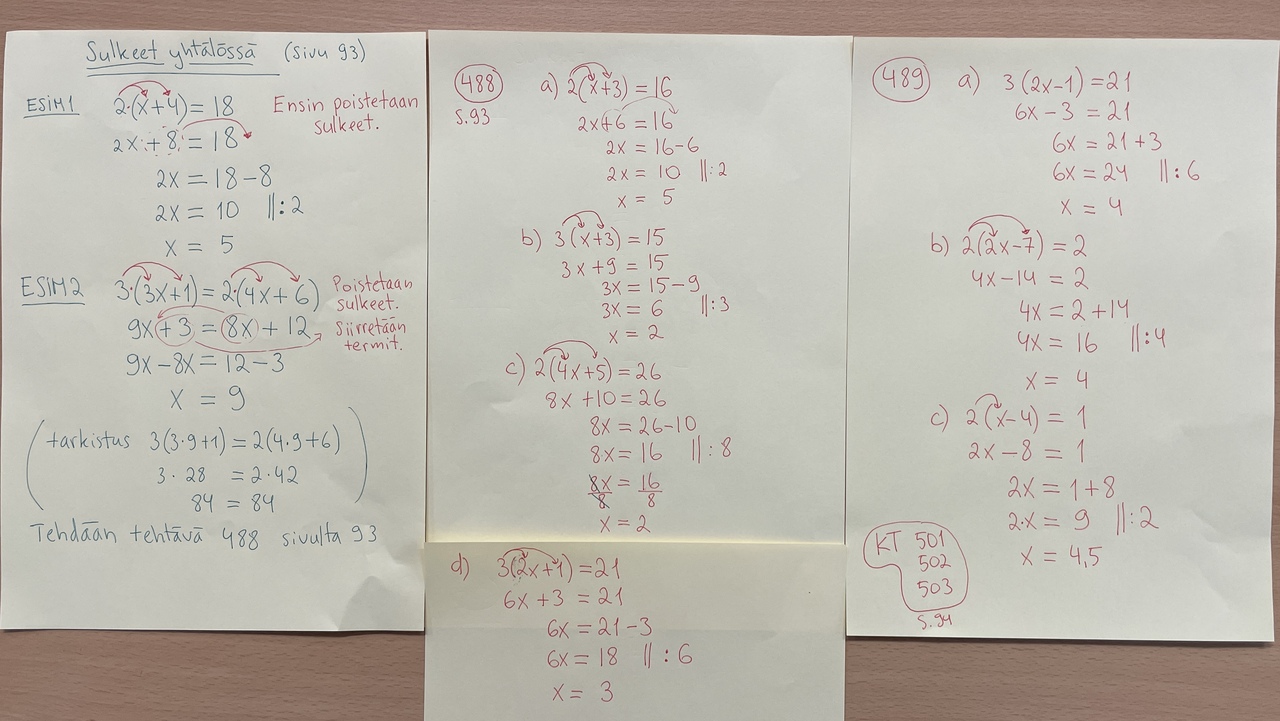 Sulkeet yhtälössä (sivu 93)
ESIM1 2·(x+4)=18 Ensin poistetaan
sulkeet.
2x+8=18
2x=18-8
2x=10 ||:2
x=5
ESIM2 3·(3x+1)=2·(4x+6) Poistetaan
sulkeet.
9x+3=8x+12 Siirretään
termit.
9x-8x=12-3
x=9
(tarkistus 3(3·9+1)=2(4·9+6)
3·28=2·42
84=84)
Tehdään tehtävä 488 sivulta 93
488 a) 2(x+3)=16
s.93
2x+6=16
2x=16-6
2x=10 ||:2
x=5
b) 3(x+3)=15
3x+9=15
3x=15-9
3x=6 ||:3
x=2
c) 2(4x+5)=26
8x+10=26
8x=26-10
8x=16 ||:8
8x/8=16/8
x=2
d) 3(2x+1)=21
6x+3=21
6x=21-3
6x=18 ||:6
x=3
489 a) 3(2x-1)=21
6x-3=21
6x=21+3
6x=24 ||:6
x=4
b) 2(2x-7)=2
4x-14=2
4x=2+14
4x=16 ||:4
x=4
c) 2(x-4)=1
2x-8=1
2x=1+8
2·x=9 ||:2
x=4,5
KT 501
502
503
s.94